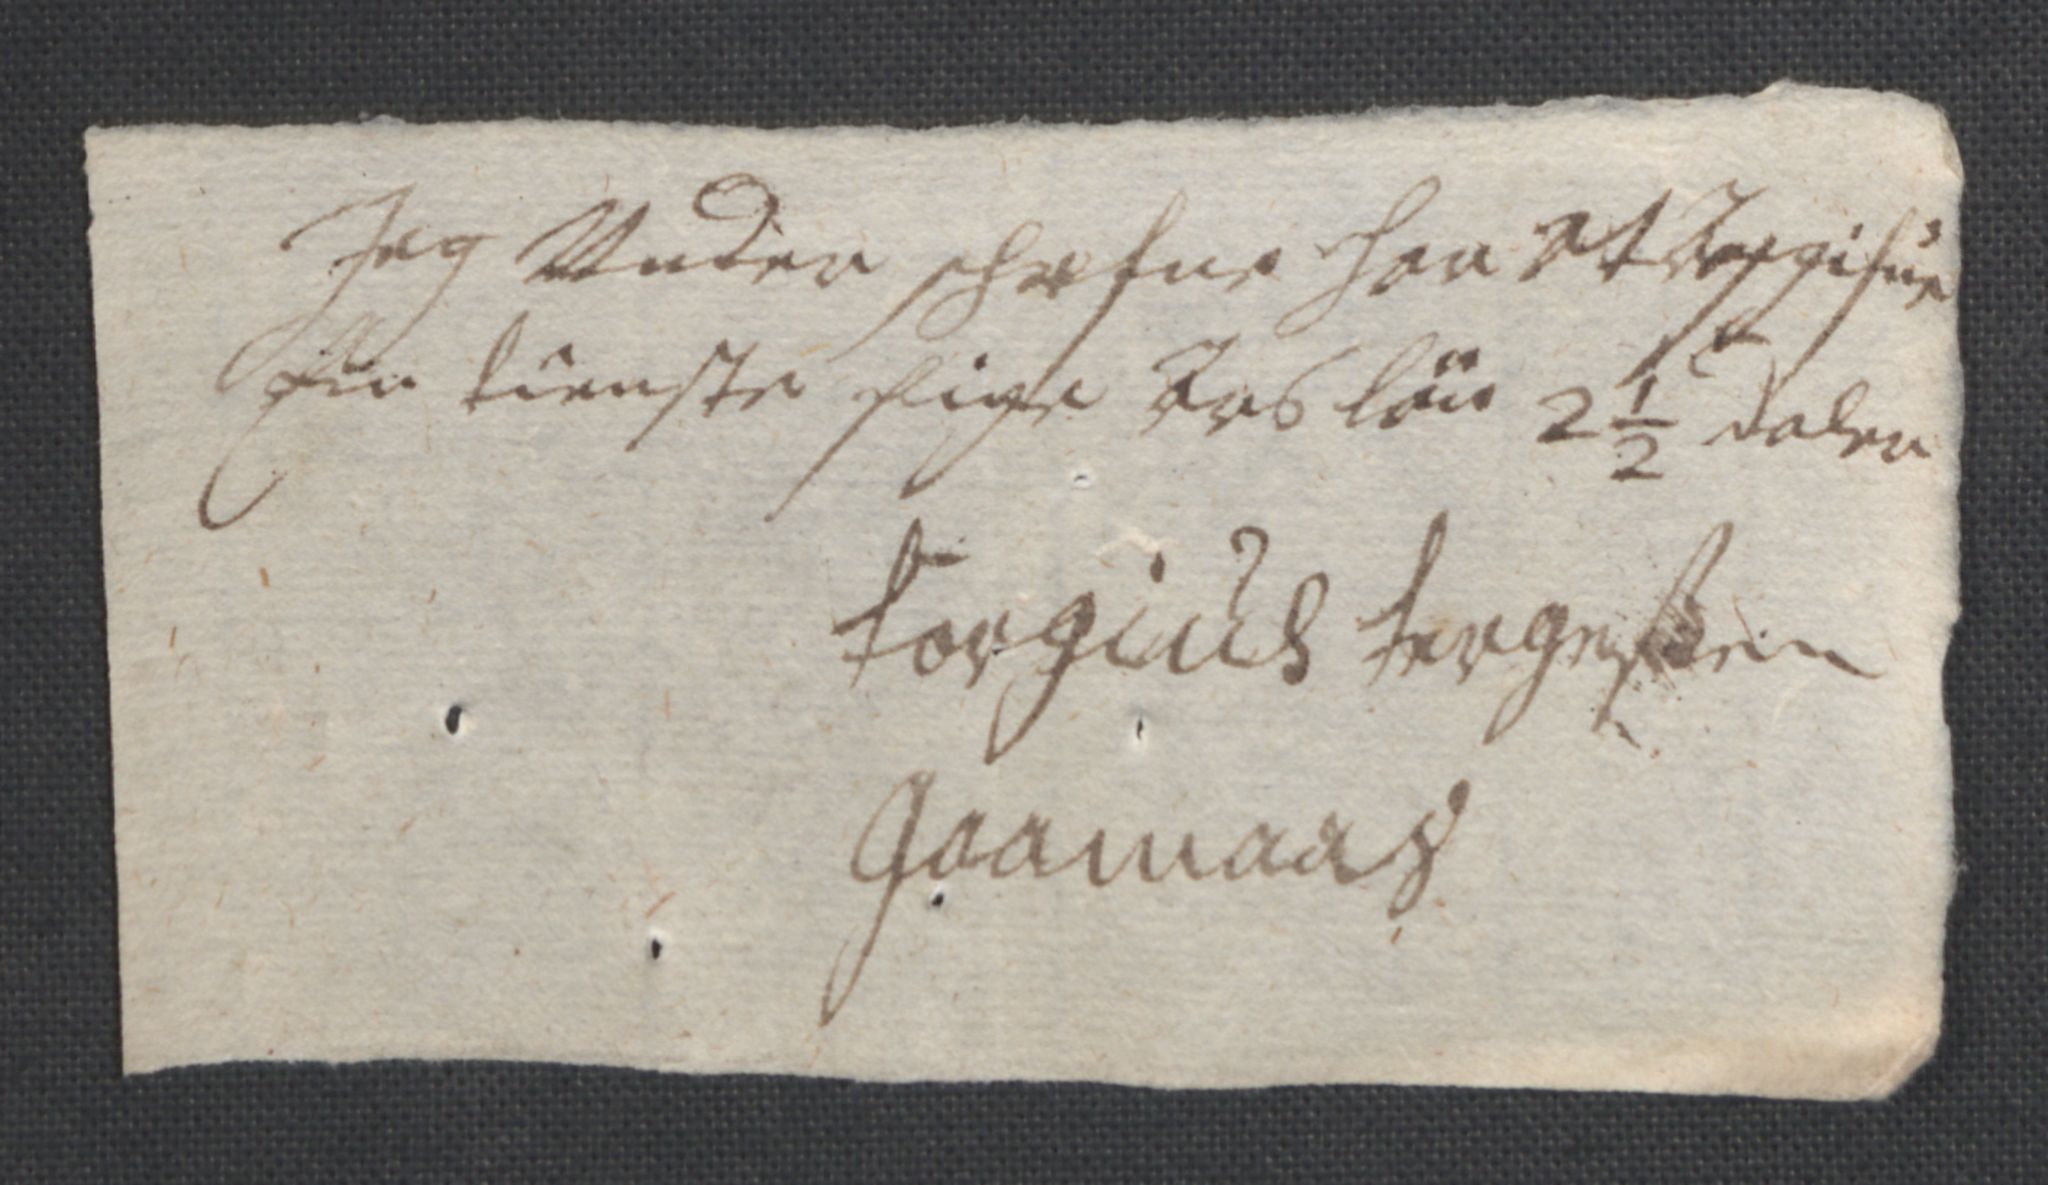 Jeg Under schrefne har at Angifue
Ein tienste pige Aars lön 2 1/2 daler
Torgius tergeßen
Gaamaas